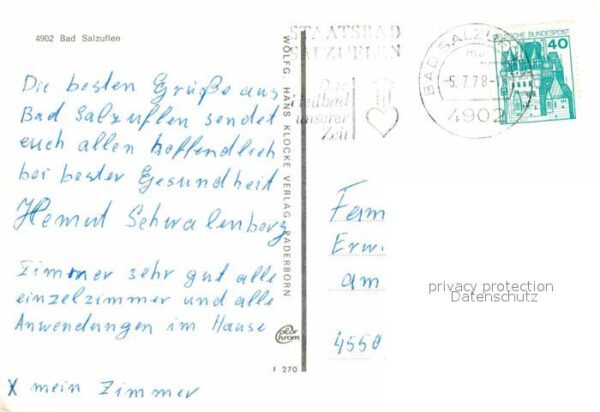 4902 Bad Salzuflen
Die besten Grüße aus
Bad Salzuflen sendet
euch allen hoffendlich
bei bester Gesundheit
Hemut Schwalenberg
Zimmer sehr gut alle
einzelzimmer und alle
Anwendungen im Hause
X mein Zimmer
WOLFG. HANS KLOCKE VERLAG PADERBORN
color chrom
F 270
STAATSBAD
SALZUFLEN
Das
Heilbad
unserer
Zeit
BAD SALZUFLEN
-5.7.78-
4902
DEUTSCHE BUNDESPOST
40
Fam
Erw.
am
4550
privacy protection
Datenschutz